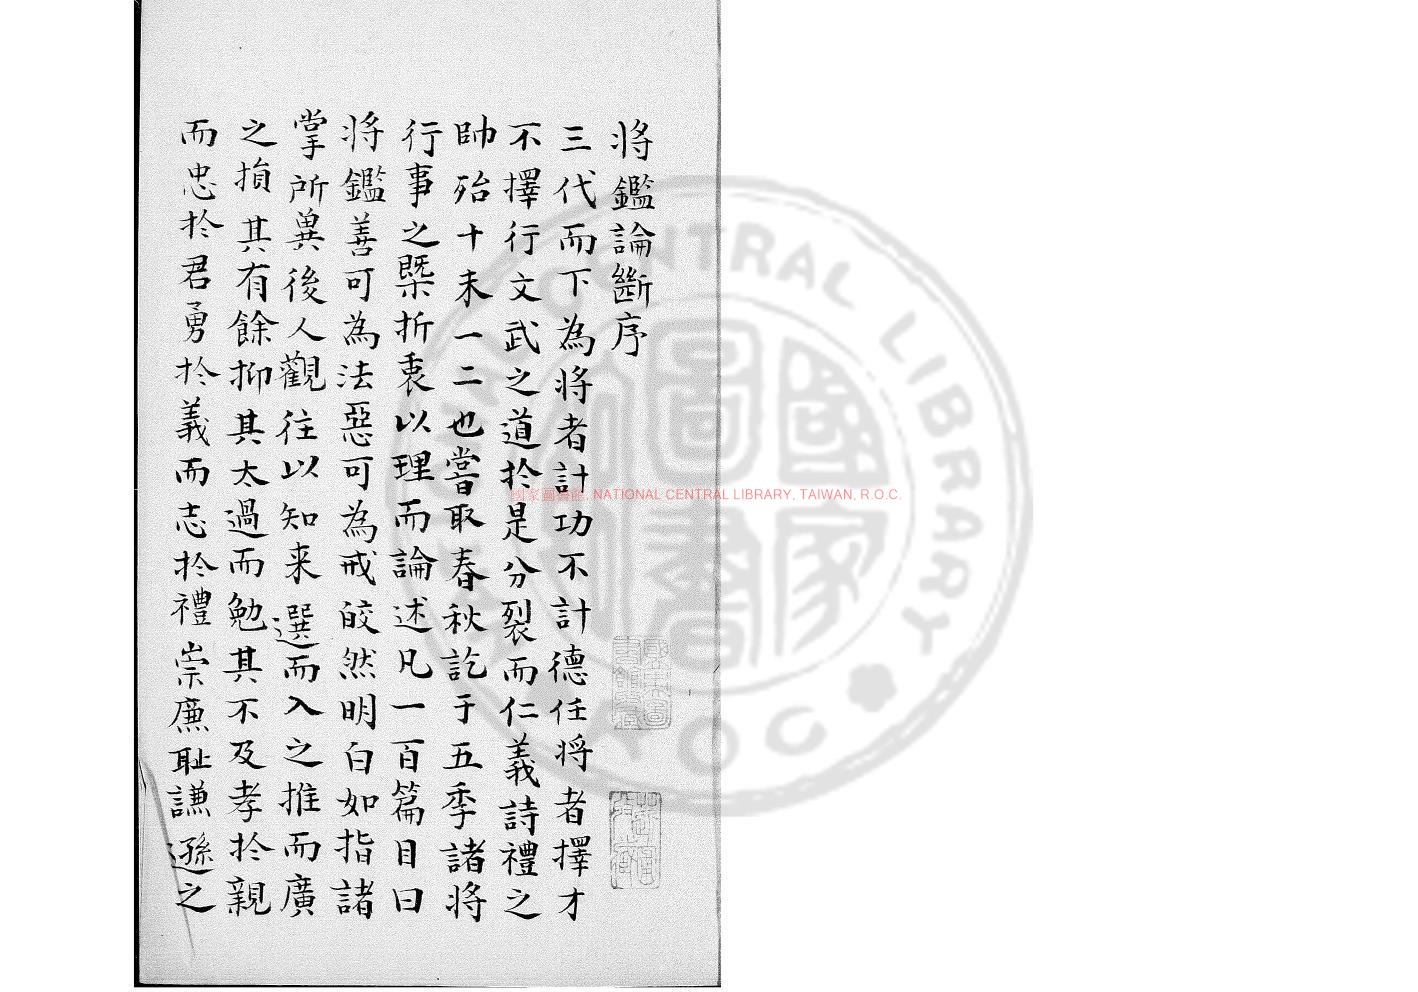 將鑑論斷序
三代而下為將者計功不計德任將者擇才
不擇行文武之道扵是分裂而仁義詩禮之
帥殆十未一二也嘗取春秋訖于五季諸將
行事之槩折衷以理而論述凡一百篇目曰
將鑑善可為法惡可為戒皎然明白如指諸
掌所兾後人觀往以知来選而入之推而廣
之損其有餘抑其太過而勉其不及孝扵親
而忠扵君勇扵義而志扵禮崇廉耻謙遜之
國家圖書館, NATIONAL CENTRAL LIBRARY, TAIWAN, R.O.C.
CENTRAL LIBRARY
國家圖書